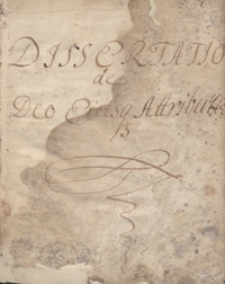 DISSERTATIO
de
Deo Eiusq Attributis